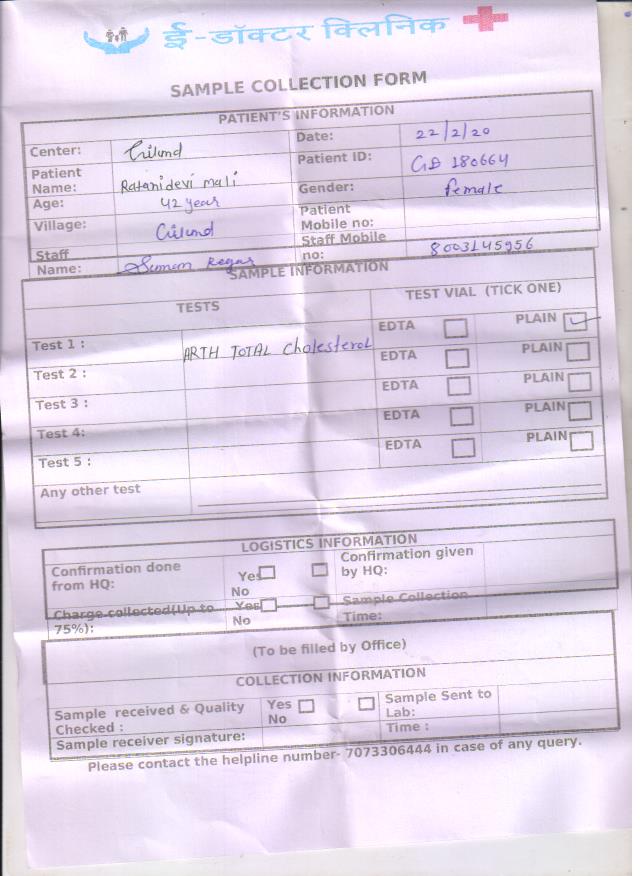 ई-डॉक्टर क्लिनिक
SAMPLE COLLECTION FORM
PATIENT'S INFORMATION
Center: Gilund Date: 22/2/20
Patient Name: Ratanidevi mali Patient ID: GD 180664
Age: 42 year Gender: female
Village: Gilund Patient Mobile no:
Staff Name: Suman Regar Staff Mobile no: 8003145956
SAMPLE INFORMATION
TESTS TEST VIAL (TICK ONE)
Test 1 : ARTH TOTAL Cholesterol EDTA PLAIN
Test 2 : EDTA PLAIN
Test 3 : EDTA PLAIN
Test 4: EDTA PLAIN
Test 5 : EDTA PLAIN
Any other test
LOGISTICS INFORMATION
Confirmation done from HQ: Yes No Confirmation given by HQ:
Charge collected(Up to 75%): Yes No Sample Collection Time:
(To be filled by Office)
COLLECTION INFORMATION
Sample received & Quality Checked : Yes No Sample Sent to Lab:
Sample receiver signature: Time :
Please contact the helpline number- 7073306444 in case of any query.